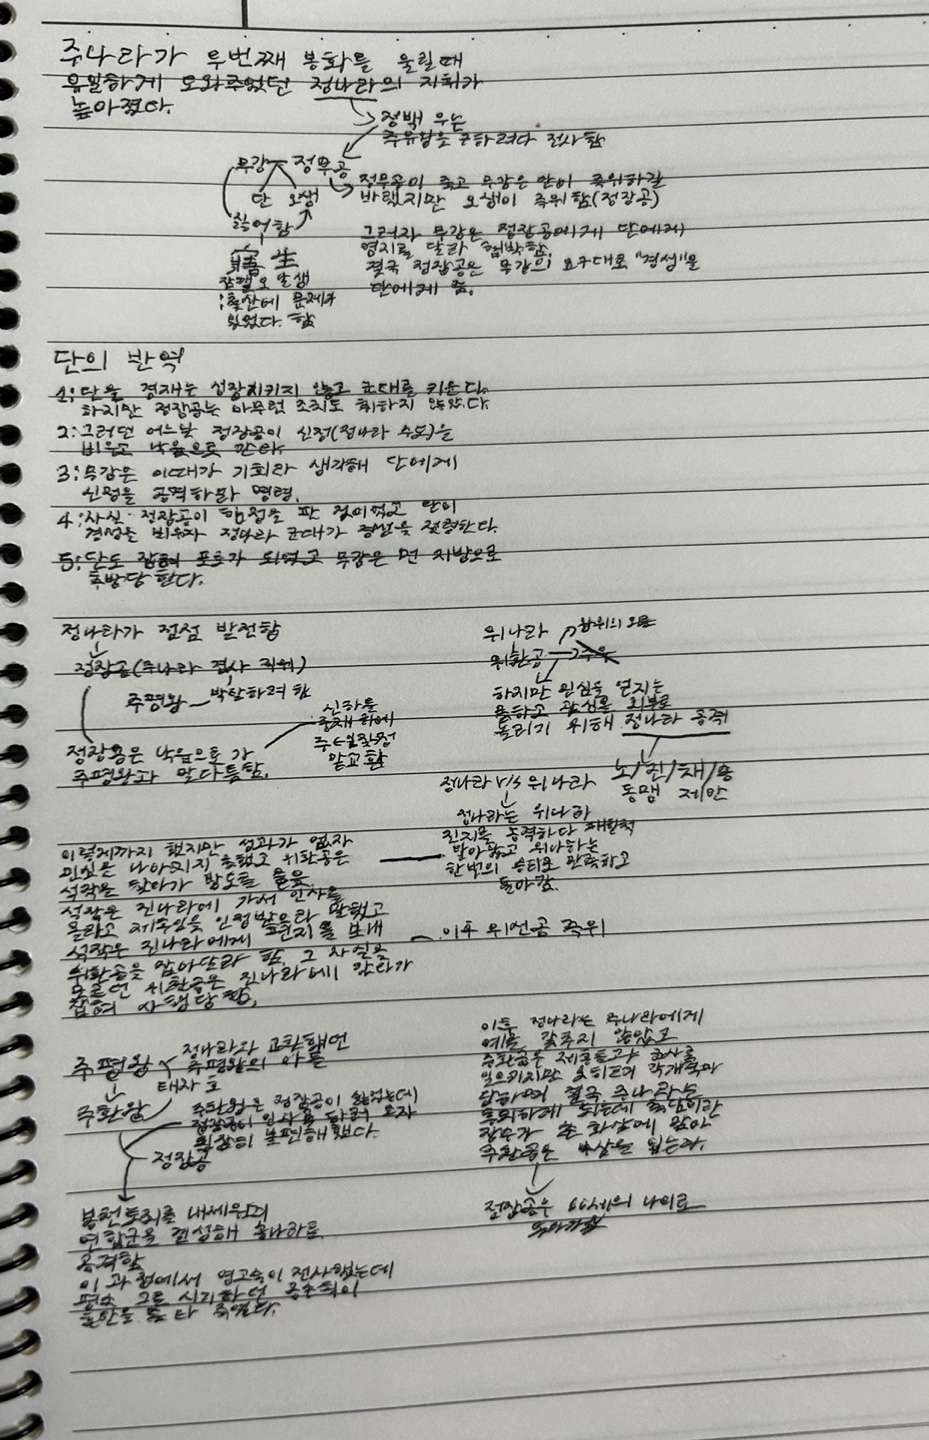 주나라가 두번째 봉화를 울릴때
유일하게 도와주었던 정나라의 지위가
높아졌다.
정백 우는
주유왕을 구하려다 전사함
무강 정무공
단 오생
싫어함
寤生
잠깰 오 날생
:출산에 문제가
있었다. 함
정무공이 죽고 무강은 단이 즉위하길
바랬지만 오생이 즉위함(정장공)
그러자 무강은 정장공에게 단에게
영지를 달라 협박함.
결국 정장공은 무강의 요구대로 "경성"을
단에게 줌.
단의 반역
1: 단을 견제는 성장시키지 않고 군대를 키운다.
하지만 정장공은 아무런 조치도 취하지 않았다.
2: 그러던 어느날 정장공이 신정(정나라 수도)을
비우고 낙읍으로 간다.
3: 무강은 이때가 기회라 생각해 단에게
신정을 공격하라 명령.
4: 사실 정장공이 함정을 판 것이였고 단이
경성을 비우자 정나라 군대가 경성을 점령한다.
5: 단도 잡혀 포로가 되었고 무강은 먼 지방으로
추방당한다.
정나라가 점점 발전함
정장공(주나라 경사 직위)
주평왕 박탈하려 함
정장공은 낙읍으로 가
주평왕과 말다툼함.
신하들
맡교환
위나라
위환공
하지만 민심을 얻지는
못하고 관심을 외부로
돌리기 위해 정나라 공격
노/진/채/송
동맹 제안
정나라 v/s 위나라
정나라는 위나라
진지를 공격하다
한번의 승리로 만족하고
돌아감.
이렇게까지 했지만 성과가 없자
민심은 나아지지 못했고 위환공은
석작을 찾아가 방도를 물음
석작은 진나라에 가서 인사를
올리고 제후임을 인정받으라 말했고
석작은 진나라에게 편지를 보내
위환공을 잡아달라 함. 그 사실을
모르던 위환공은 진나라에 갔다가
잡혀 사형당함.
이후 위선공 즉위
주평왕
정나라와 교환했던
주평왕의 아들
태자 호
주환왕
주환왕은 정장공이 싫었는데
정장공이 인사를 하러 오자
굉장히 불편해 했다.
정장공
봉천토죄를 내세워
연합군을 결성해 송나라로
공격함
이 과정에서 영고숙이 전사했는데
평소 그를 시기하던 공손알이
혼란을 틈 타 죽였다.
이후 정나라는 주나라에게
예를 갖추지 않았고
장수가 쏜 화살에 맞아
주환공은 부상을 입는다.
정장공은 66세의 나이로